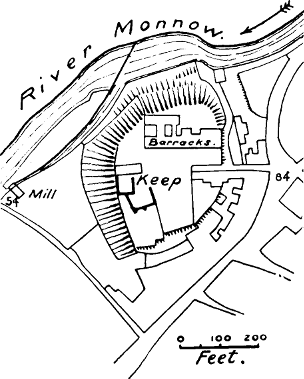 River Monnow.
Barracks.
Keep
84
Mill
54
0 100 200
Feet.